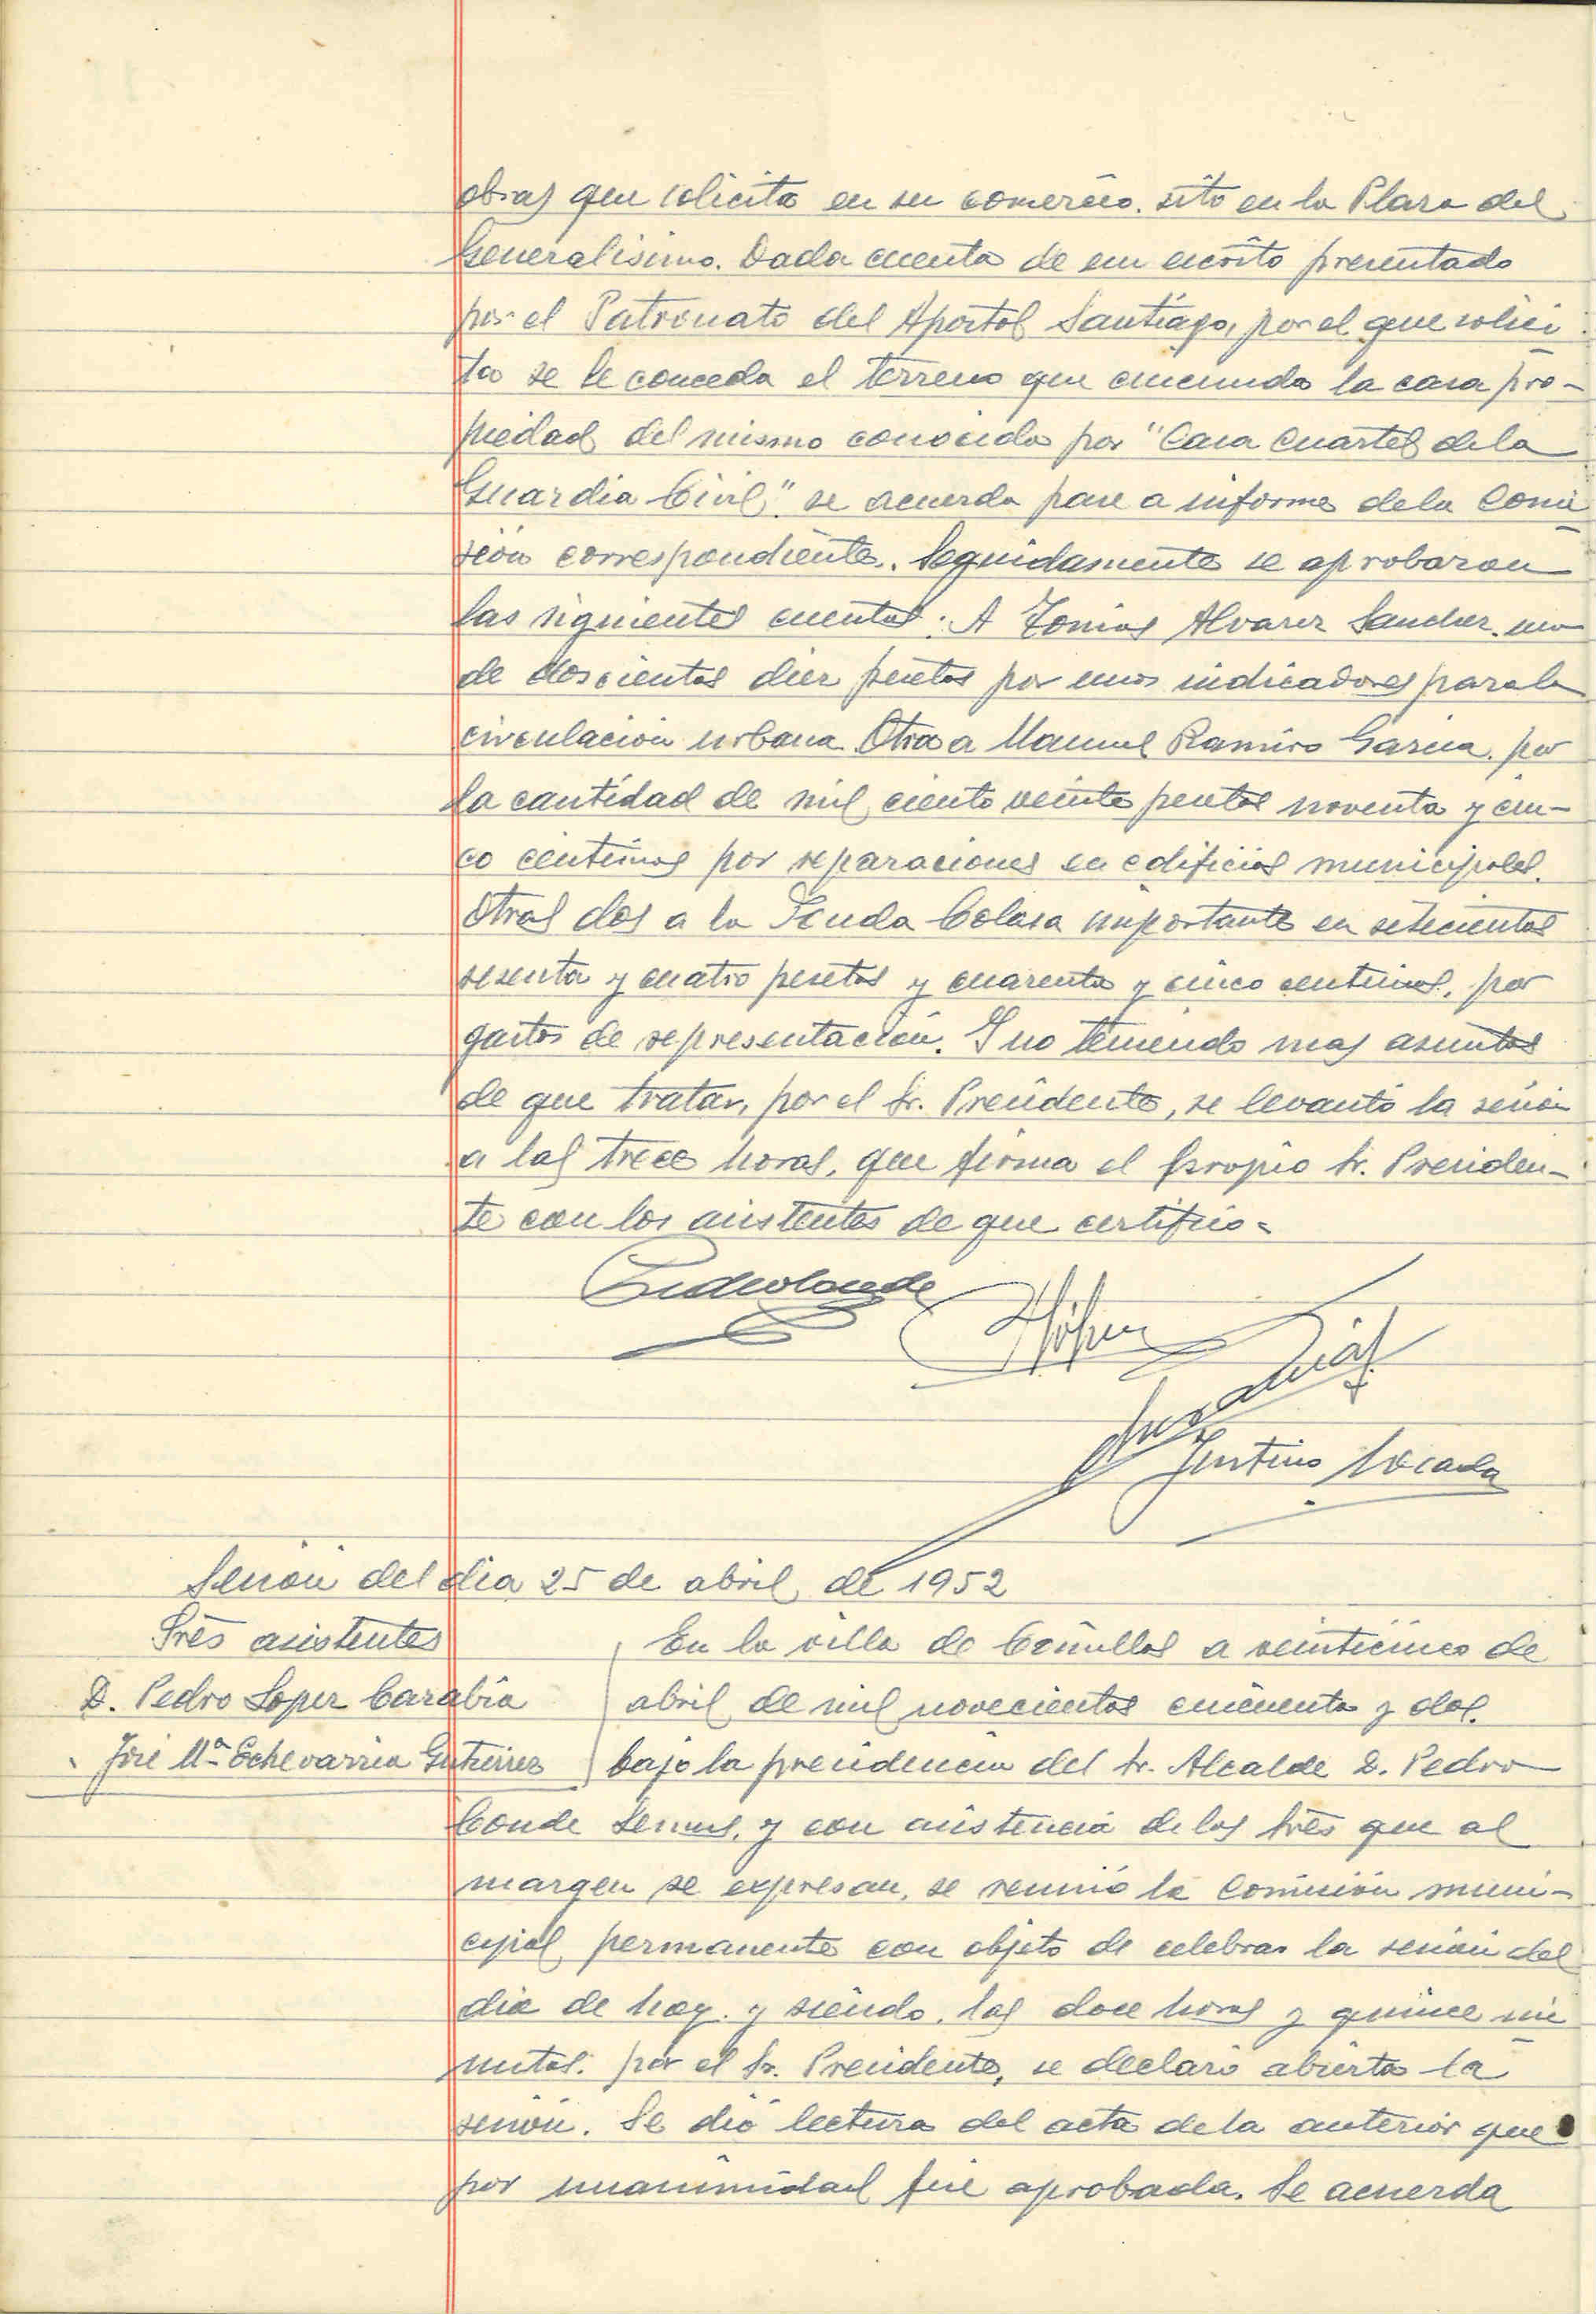 obras que solicita en su comercio. sito en la Plaza del
Generalisimo. Dada cuenta de un escrito presentado
por el Patronato del Apostol Santiago, por el que solici
ta se le conceda el terreno que circunda la casa pro-
piedad del mismo conocida por "Casa Cuartel de la
Guardia Civil". se acuerda pase a informe de la Comi
sión correspondiente. Seguidamente se aprobaron
las siguientes cuentas: A Tomas Alvarez Sanchez. una
de doscientas diez pesetas por unos indicadores para la
circulación urbana. Otra a Manuel Ramiro Garcia. por
la cantidad de mil ciento veinte pesetas noventa y cin-
co centimos por reparaciones en edificios municipales.
Otras dos a la Colasa importante en setecientas
sesenta y cuatro pesetas y cuarenta y cinco centimos, por
gastos de representación. Y no teniendo mas asuntos
de que tratar, por el Sr. Presidente, se levantó la sesión
a las trece horas, que firma el propio Sr. Presiden-
te con los asistentes de que certifico=
Pedro Conde
Justino
Sesión del dia 25 de abril de 1952
Sres asistentes
D. Pedro Lopez Carabia
" José Mª Echevarria Gutierrez
En la villa de Comillas a veinticinco de
abril de mil novecientos cincuenta y dos.
bajo la presidencia del Sr. Alcalde D. Pedro
Conde y con asistencia de los Sres que al
margen se expresan, se reunió la Comisión muni-
cipal permanente con objeto de celebrar la sesión del
dia de hoy. y siendo, las doce horas y quince mi
nutos. por el Sr. Presidente, se declaró abierta la
sesión. Se dió lectura del acta de la anterior que
por unanimidad fué aprobada. Se acuerda